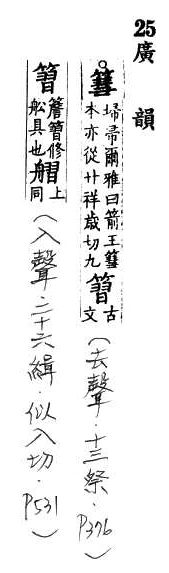 25 廣韻
篲
埽帚爾雅曰箭王篲
本亦從廾祥歲切九
𥱵
古
文
(去聲·十三祭·P376)
𥱵
簷𥱵修
船具也
上
同
(入聲·二十六緝·似入切·P531)